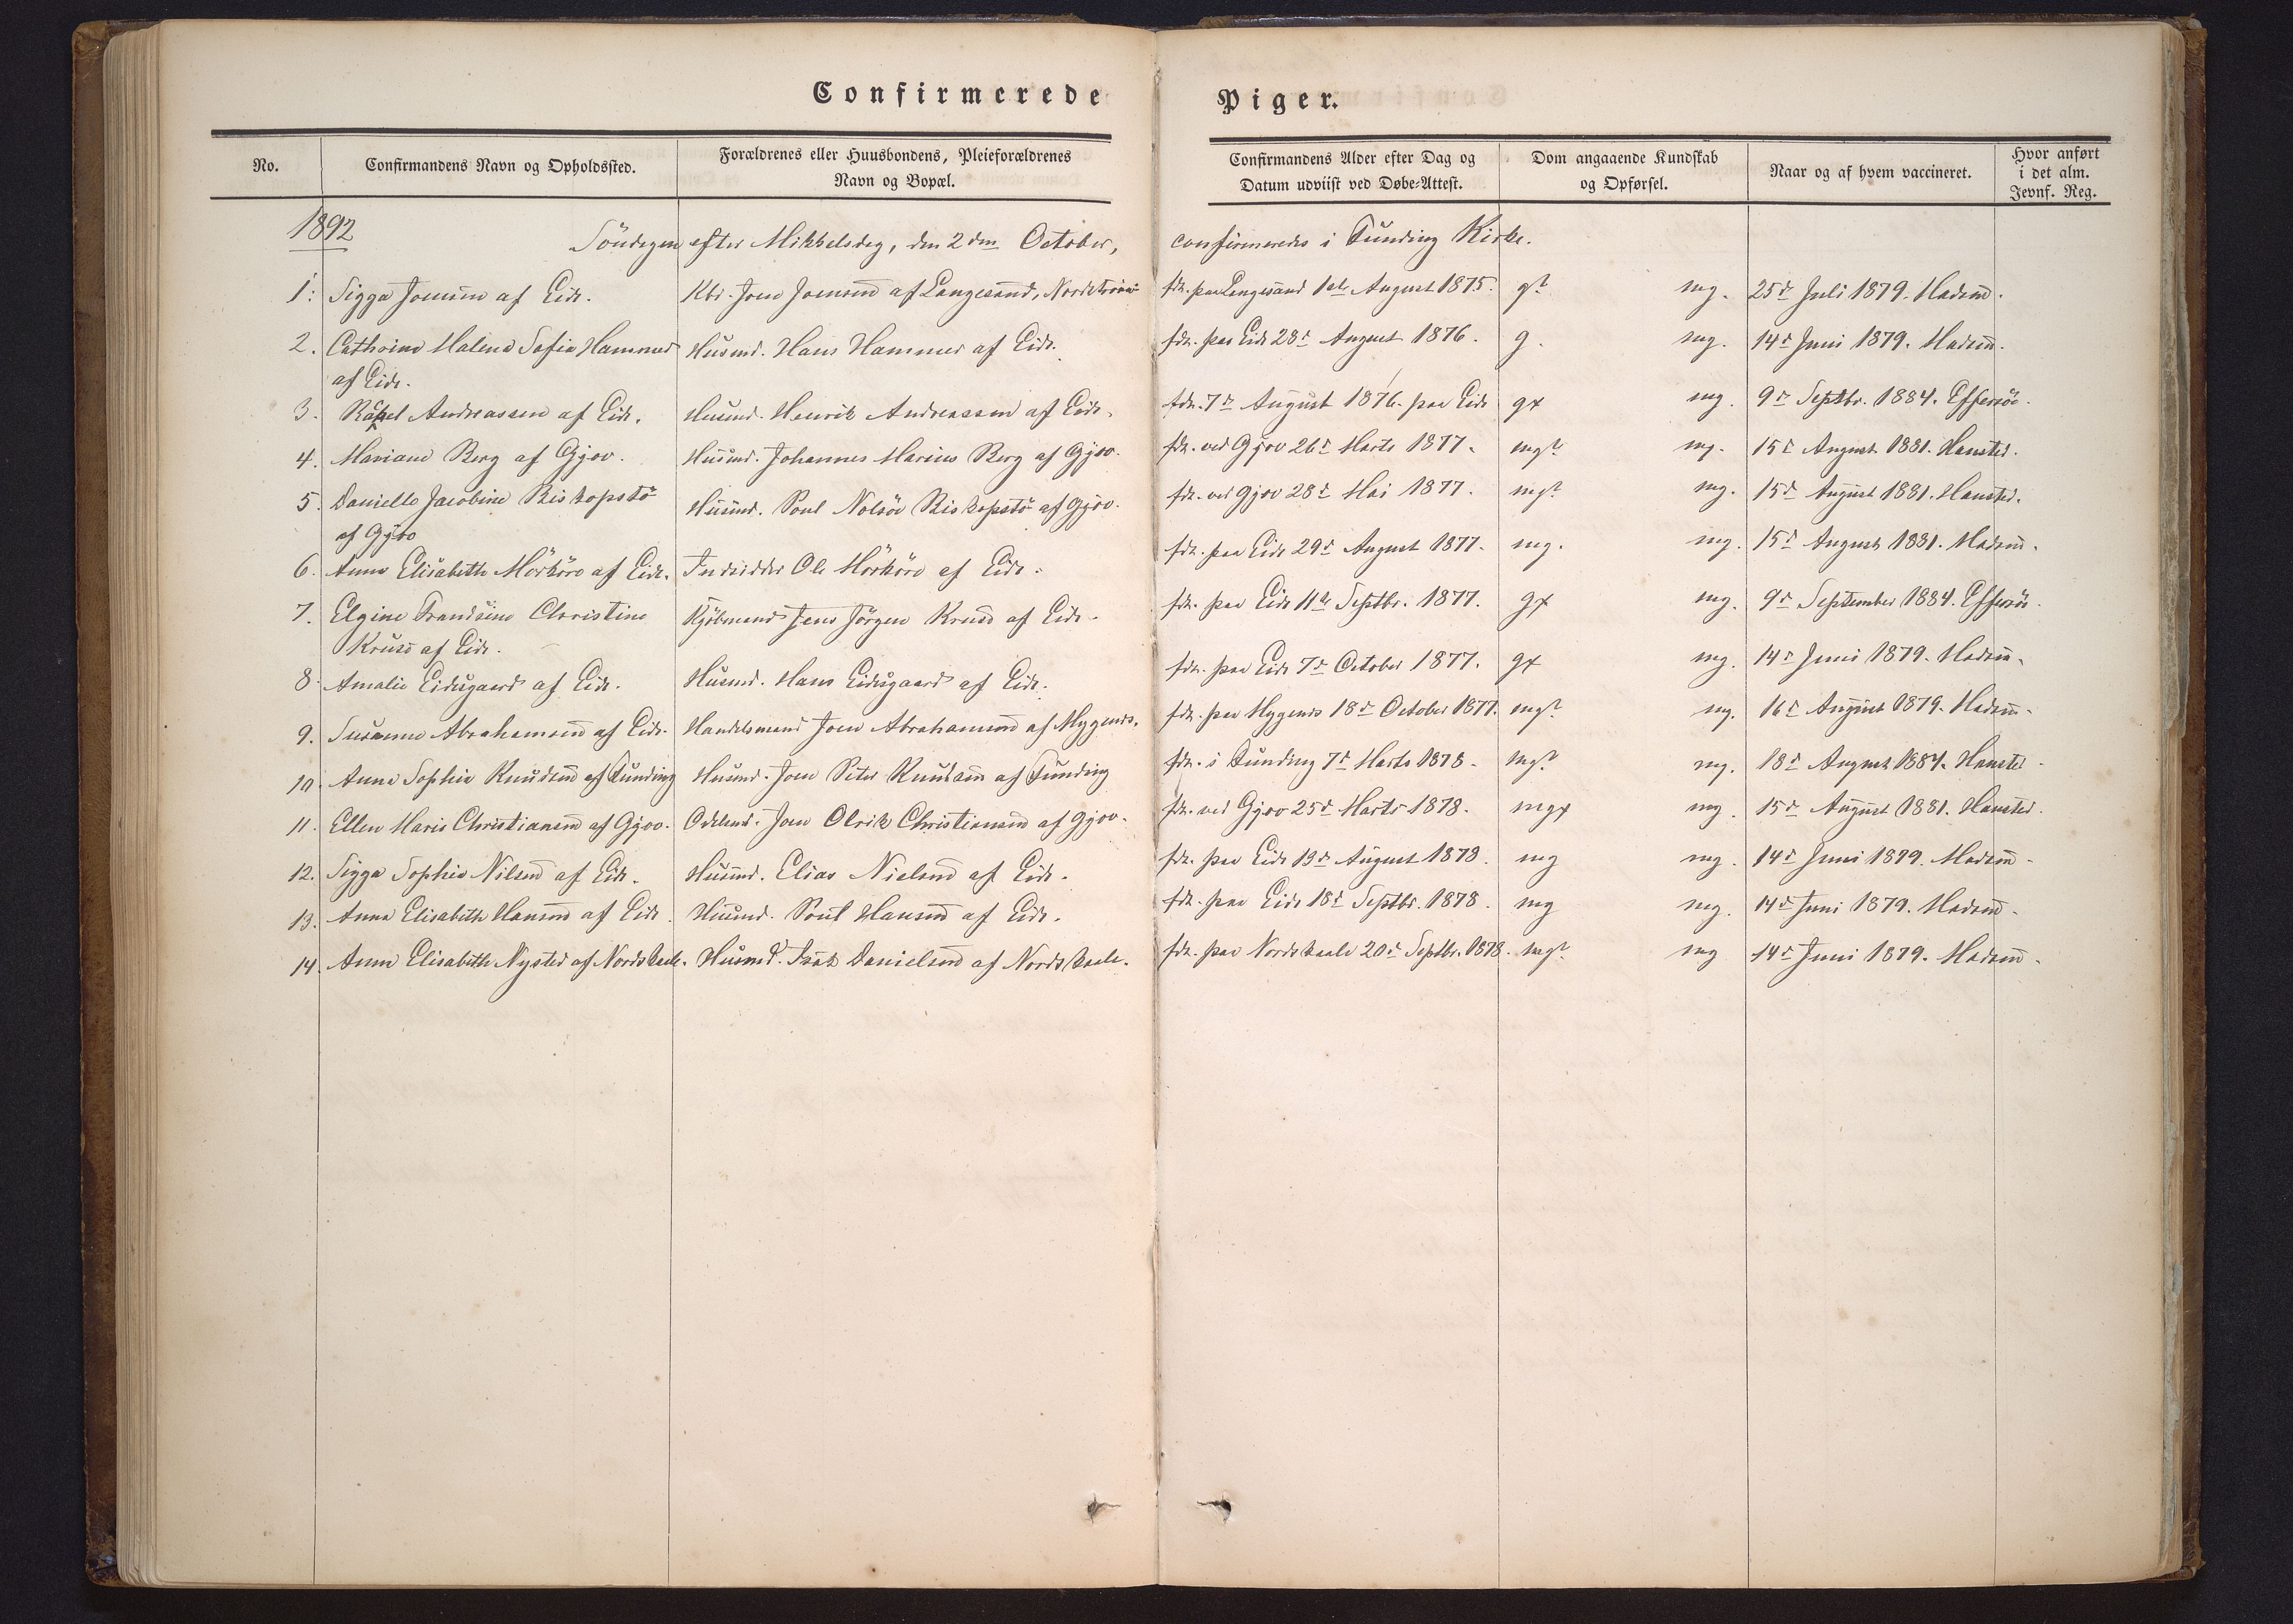 Confirmerede Piger.
No.
Confirmandens Navn og Opholdssted.
Forældrenes eller Huusbondens, Pleieforældrenes
Navn og Bopæl.
Confirmandens Alder efter Dag og
Datum udviist ved Døbe-Attest.
Dom angaaende Kundskab
og Opførsel.
Naar og af hvem vaccineret.
Hvor anført
i det alm.
Jevnf. Reg.
1892
Söndagen efter Mikkelsdag, den 2den October, confirmeredes i Funding Kirke.
1. Sigga Joensen af Eide. Kbd. Joen Joensen af Langesand, fdt. paa Langesand 1ste August 1875. g? mg. 25d Juli 1879. Madsen.
2. Cathrine Malene Sofie Hammer Husmd. Hans Hammer af Eide. fdt. paa Eide 28d August 1876. g. mg. 14d Juni 1879. Madsen.
af Eide.
3. Rakel Andreassen af Eide. Husmd. Henrik Andreassen af Eide. fdt. 7d August 1876 paa Eide gx mg. 9d Septbr. 1884. Effersöe.
4. Mariane Berg af Gjov. Husmd. Johannes Marius Berg af Gjov. fdt. ved Gjov 26d Marts 1877. mg? mg. 15d August 1881. Hansted.
5. Danielle Jacobine Biskopstö Husmd. Poul Nolsöe Biskopstö af Gjov. fdt. ved Gjov 28d Mai 1877. mg? mg. 15d August 1881. Hansted.
af Gjov
6. Anna Elisabeth Mörköre af Eide. Indsidder Ole Mörköre af Eide. fdt. paa Eide 29d August 1877. mg. mg. 15d August 1881. Madsen.
7. Elgine Frandsine Christine Kjöbmand Jens Jörgen Kruse af Eide. fdt. paa Eide 11te Septbr. 1877. gx mg. 9d September 1884. Effersöe.
Kruse af Eide.
8. Amalie Eidesgaard af Eide. Husmd. Hans Eidesgaard af Eide. fdt. paa Eide 7d October 1877. gx mg. 14d Juni 1879. Madsen.
9. Susanne Abrahamsen af Eide. Handelsmand Joen Abrahamsen af Myggenes. fdt. paa Myggenes 18d October 1877. mg? mg. 16d August 1879. Madsen.
10. Anna Sophie Knudsen af Funding Husmd. Joen Peter Knudsen af Funding fdt. i Funding 7d Marts 1878. mg? mg. 18d August 1884. Hansted.
11. Ellen Marie Christiansen af Gjov. Odelsmd. Joen Olrik Christiansen af Gjov. fdt. ved Gjov 25d Marts 1878. mgx mg. 15d August 1881. Hansted.
12. Sigga Sophie Nilsen af Eide. Husmd. Elias Nielsen af Eide. fdt. paa Eide 13d August 1878. mg mg. 14d Juni 1879. Madsen.
13. Anna Elisabeth Hansen af Eide. Husmd. Poul Hansen af Eide. fdt. paa Eide 18d Septbr. 1878. mg mg. 14d Juni 1879. Madsen.
14. Anna Elisabeth Nysted af Nordskaale. Husmd. Isak Danielsen af Nordskaale. fdt. paa Nordskaale 20d Septbr. 1878. mg? mg 14d Juni 1879. Madsen.